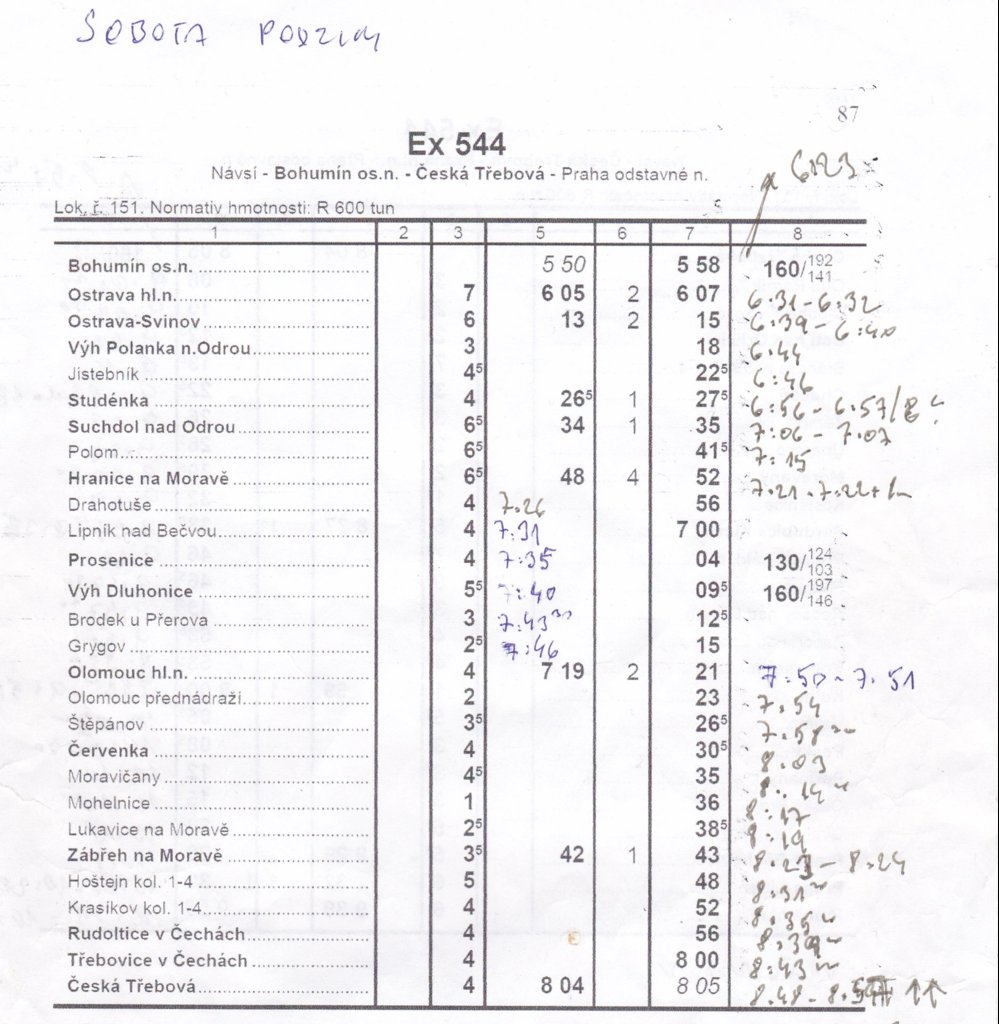 SOBOTA PODZIM
87
Ex 544
Návsí - Bohumín os.n. - Česká Třebová - Praha odstavné n.
6:23
Lok. ř. 151. Normativ hmotnosti: R 600 tun
1 2 3 5 6 7 8
Bohumín os.n. 5 50 5 58 160/192 141
Ostrava hl.n. 7 6 05 2 6 07 6:31 - 6:32
Ostrava-Svinov 6 13 2 15 6:39 - 6:40
Výh Polanka n.Odrou 3 18 6:44
Jistebník 4⁵ 22⁵ 6:46
Studénka 6⁵ 26⁵ 1 27⁵ 6:56 - 6:57/8
Suchdol nad Odrou 6⁵ 34 1 35 7:06 - 7:07
Polom 6⁵ 41⁵ 7:15
Hranice na Moravě 6⁵ 48 4 52 7:21 - 7:22
Drahotuše 4 7:26 56
Lipník nad Bečvou 4 7:31 7 00
Prosenice 4 7:35 04 130/124 103
Výh Dluhonice 5⁵ 7:40 09⁵ 160/197 146
Brodek u Přerova 3 7:43 12⁵
Grygov 2⁵ 7:46 15
Olomouc hl.n. 4 7 19 2 21 7:50 - 7:51
Olomouc přednádraží 2 23 7:54
Štěpánov 3⁵ 26⁵ 7:58
Červenka 4 30⁵ 8:03
Moravičany 4⁵ 35 8:14
Mohelnice 1 36 8:17
Lukavice na Moravě 2⁵ 38⁵ 8:19
Zábřeh na Moravě 3⁵ 42 1 43 8:23 - 8:24
Hoštejn kol. 1-4 5 48 8:31
Krasíkov kol. 1-4 4 52 8:35
Rudoltice v Čechách 4 56 8:39
Třebovice v Čechách 4 8 00 8:43
Česká Třebová 4 8 04 8 05 8:48